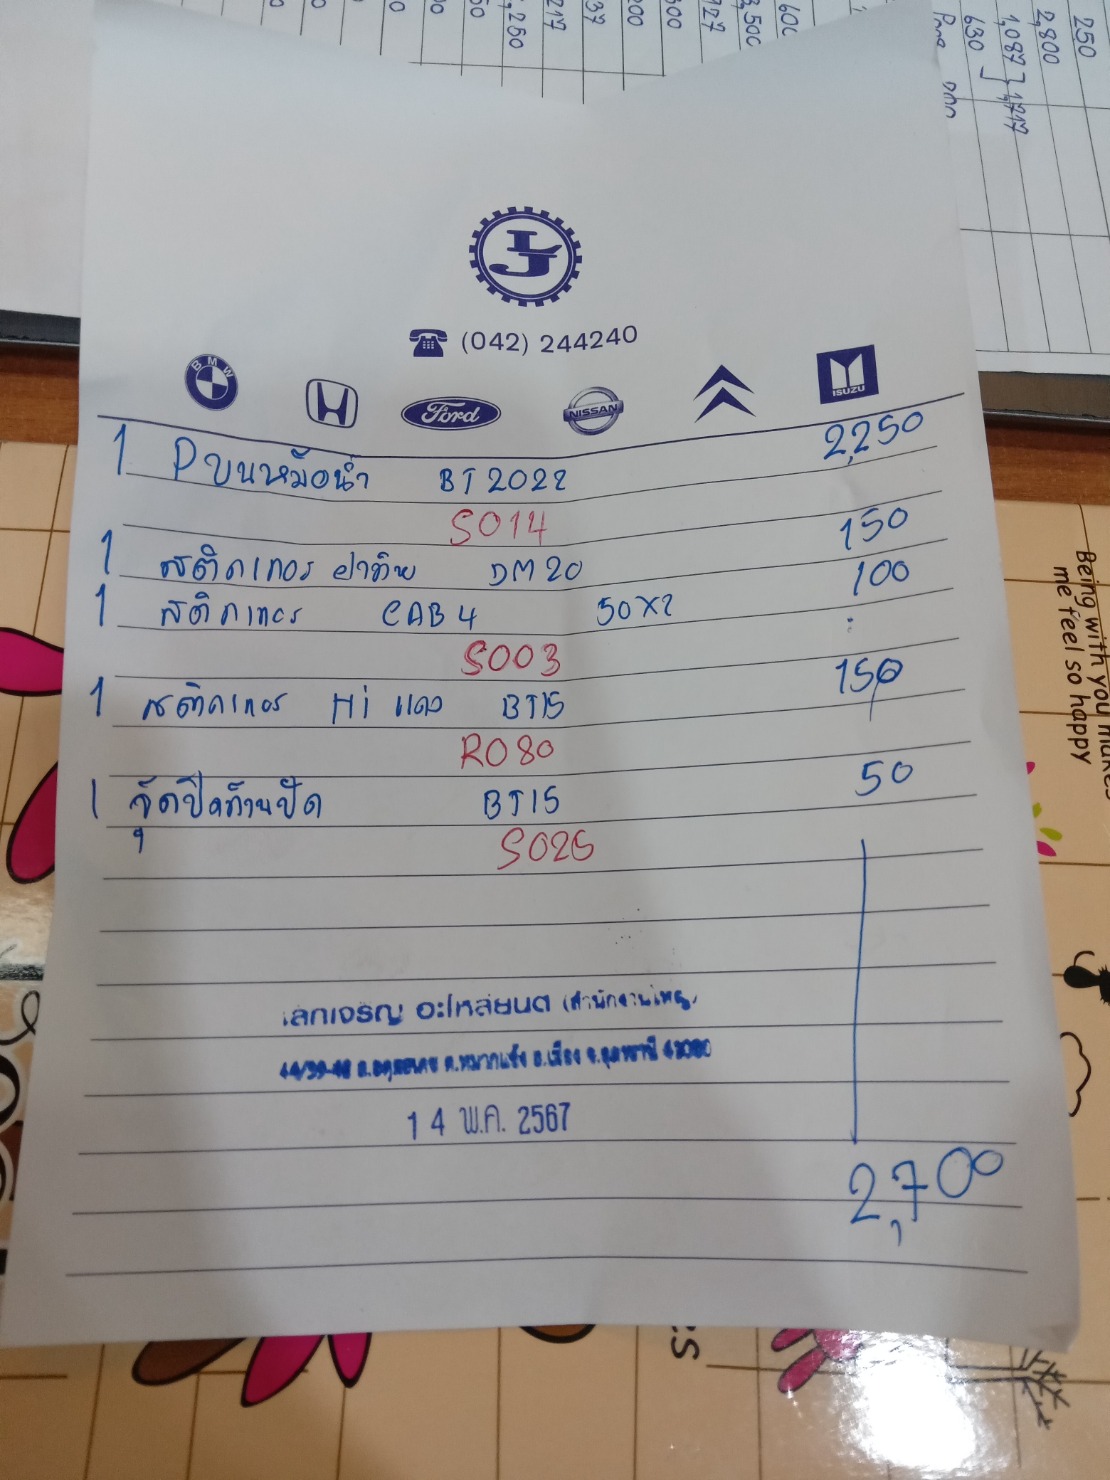 250
2,800
1,087
630
1,717
,250
217
37
200
300
727
3,500
600
LJ
(042) 244240
BMW
H
Ford
NISSAN
ISUZU
1 Pบนหม้อน้ำ BT2022 2,250
S014
1 สติกเกอร์ ฝาท้าย DM20 150
1 สติกเกอร์ CAB4 50x2 100
S003
1 สติกเกอร์ Hi แดง BT15 150
R080
1 จุ๊ดปิดก้านปัด BT15 50
S025
เลกเจริญ อะไหล่ยนต์ (สำนักงานใหญ่)
44/39-48 ต.หมากแข้ง อ.เมือง จ.อุดรธานี 41000
14 พ.ค. 2567
2,700
Being with you makes
me feel so happy